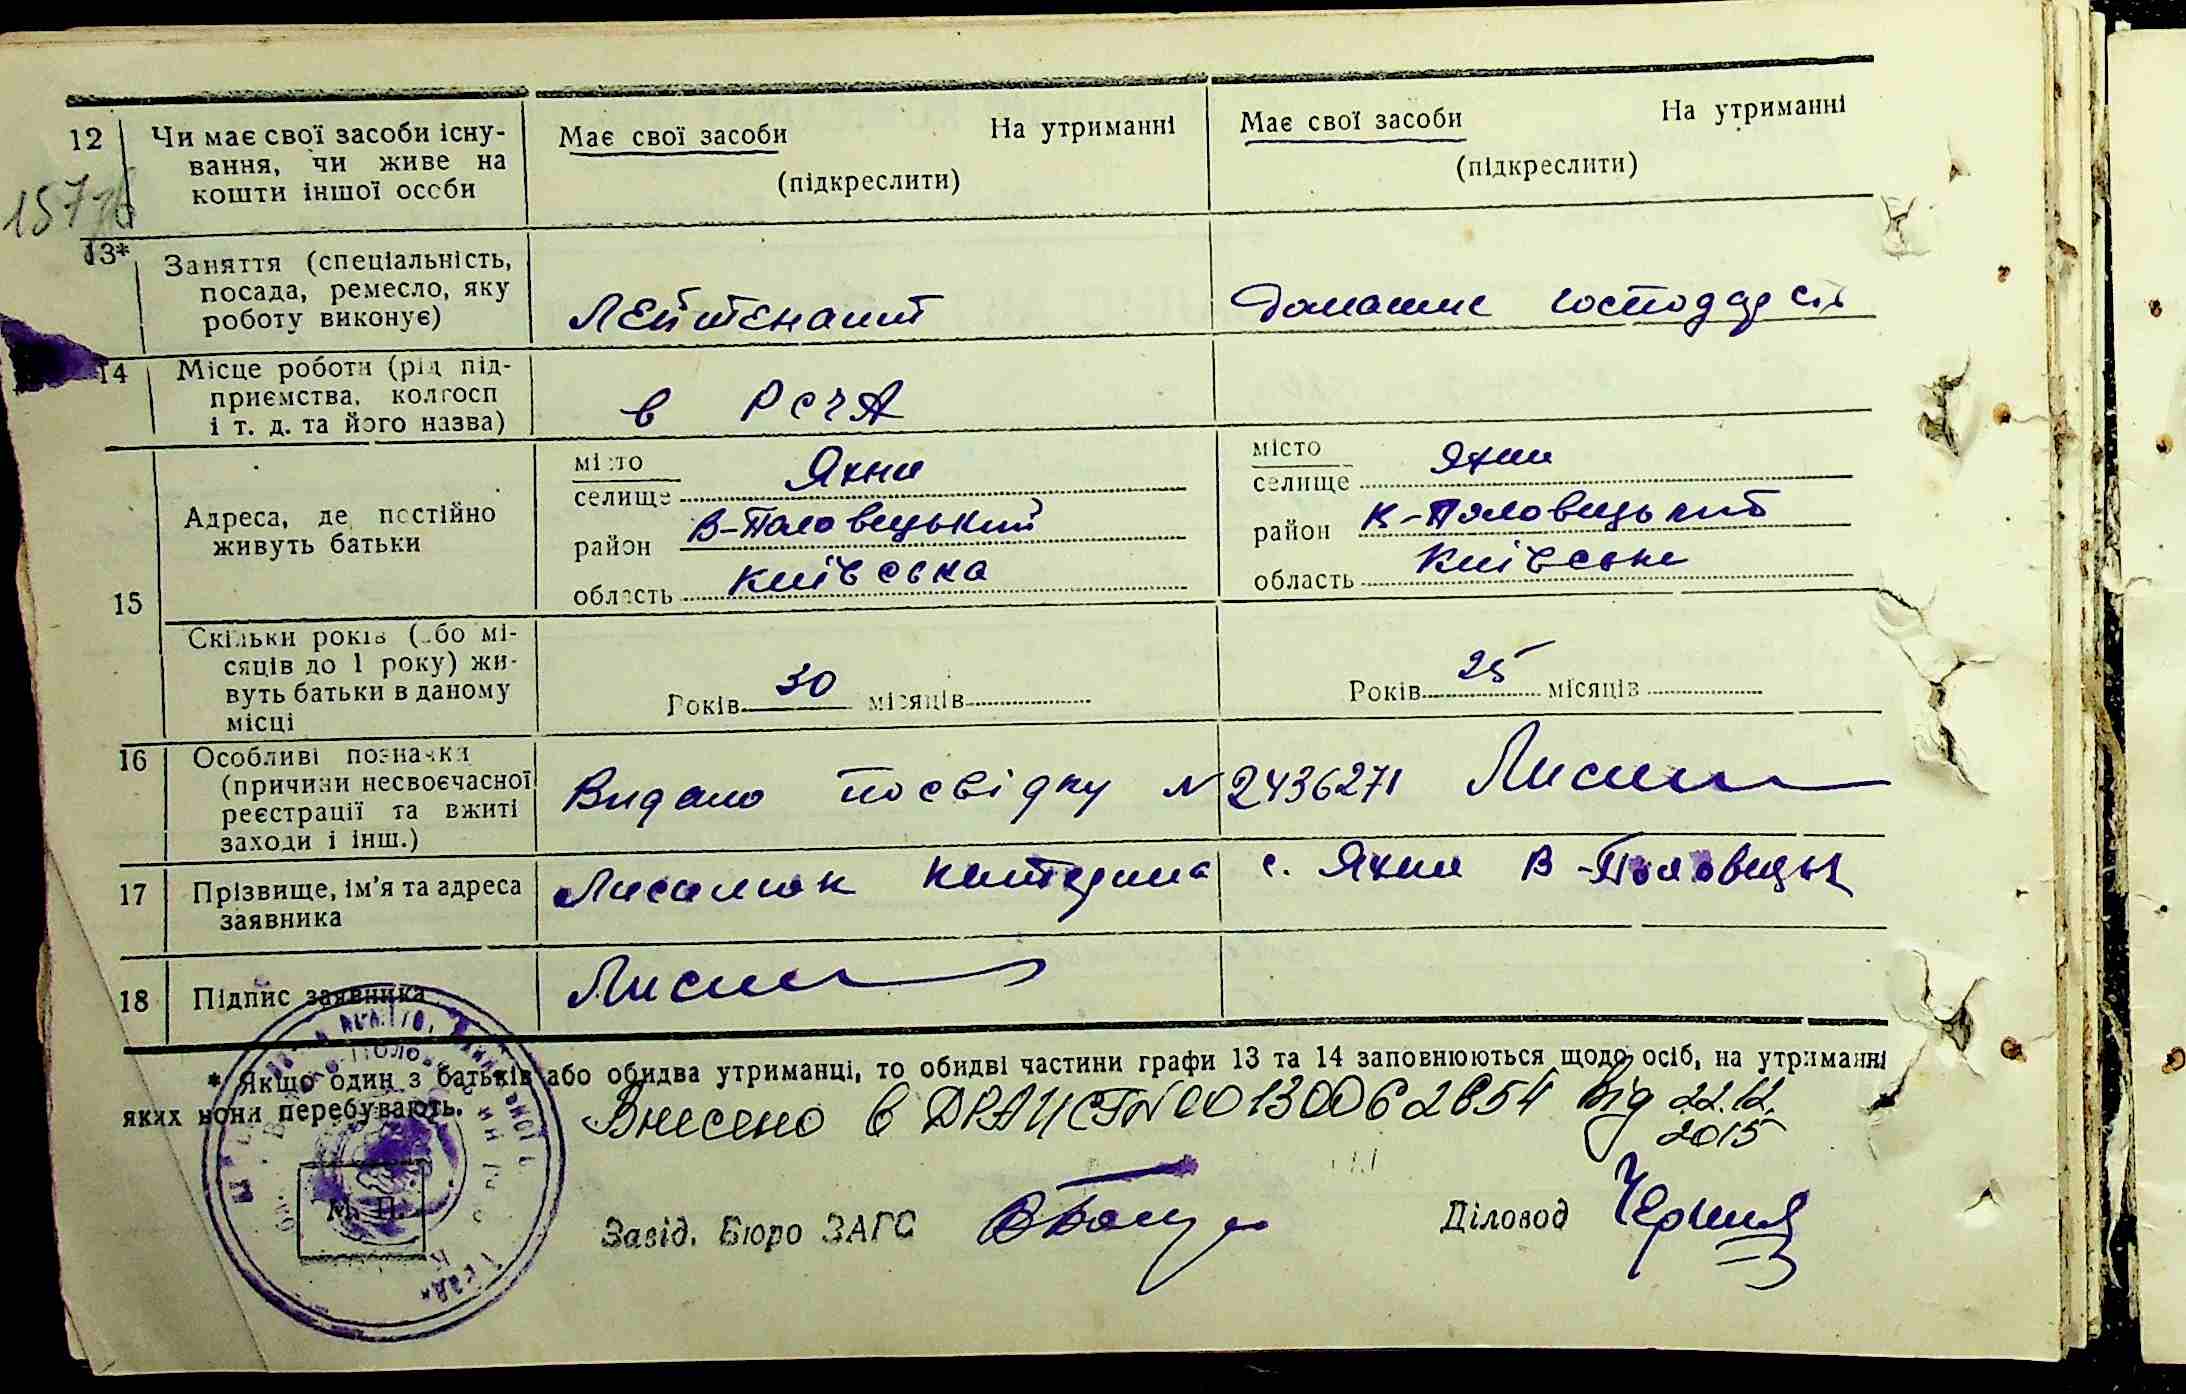 12 Чи має свої засоби існу-
вання, чи живе на
кошти іншої особи
Має свої засоби На утриманні
(підкреслити)
Має свої засоби На утриманні
(підкреслити)
157
13* Заняття (спеціальність,
посада, ремесло, яку
роботу виконує)
Лейтенант
Домашнє господарств
14 Місце роботи (рід під-
приємства, колгосп
і т. д. та його назва)
в РСЧА
15 Адреса, де постійно
живуть батьки
місто
селище Яхни
район В-Половецький
область Київська
місто
селище Яхни
район В-Половецький
область Київська
Скільки років (або мі-
сяців до 1 року) жи-
вуть батьки в даному
місці
Років 30 місяців
Років 25 місяців
16 Особливі позначки
(причини несвоєчасної
реєстрації та вжиті
заходи і інш.)
Видано посвідку № 2436271
17 Прізвище, ім'я та адреса
заявника
Катерина с. Яхни В-Половецьк
18 Підпис заявника
* Якщо один з батьків або обидва утриманці, то обидві частини графи 13 та 14 заповнюються щодо осіб, на утриманні
яких вони перебувають.
Внесено в ДРАЦСГ № 00130062854 від 22.12.
2015
М. П.
Завід. Бюро ЗАГС
Діловод